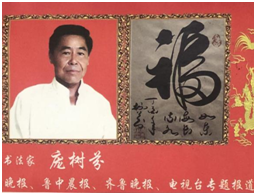 福
书法家 庞树芬
晚报、鲁中晨报、齐鲁晚报、电视台专题报道